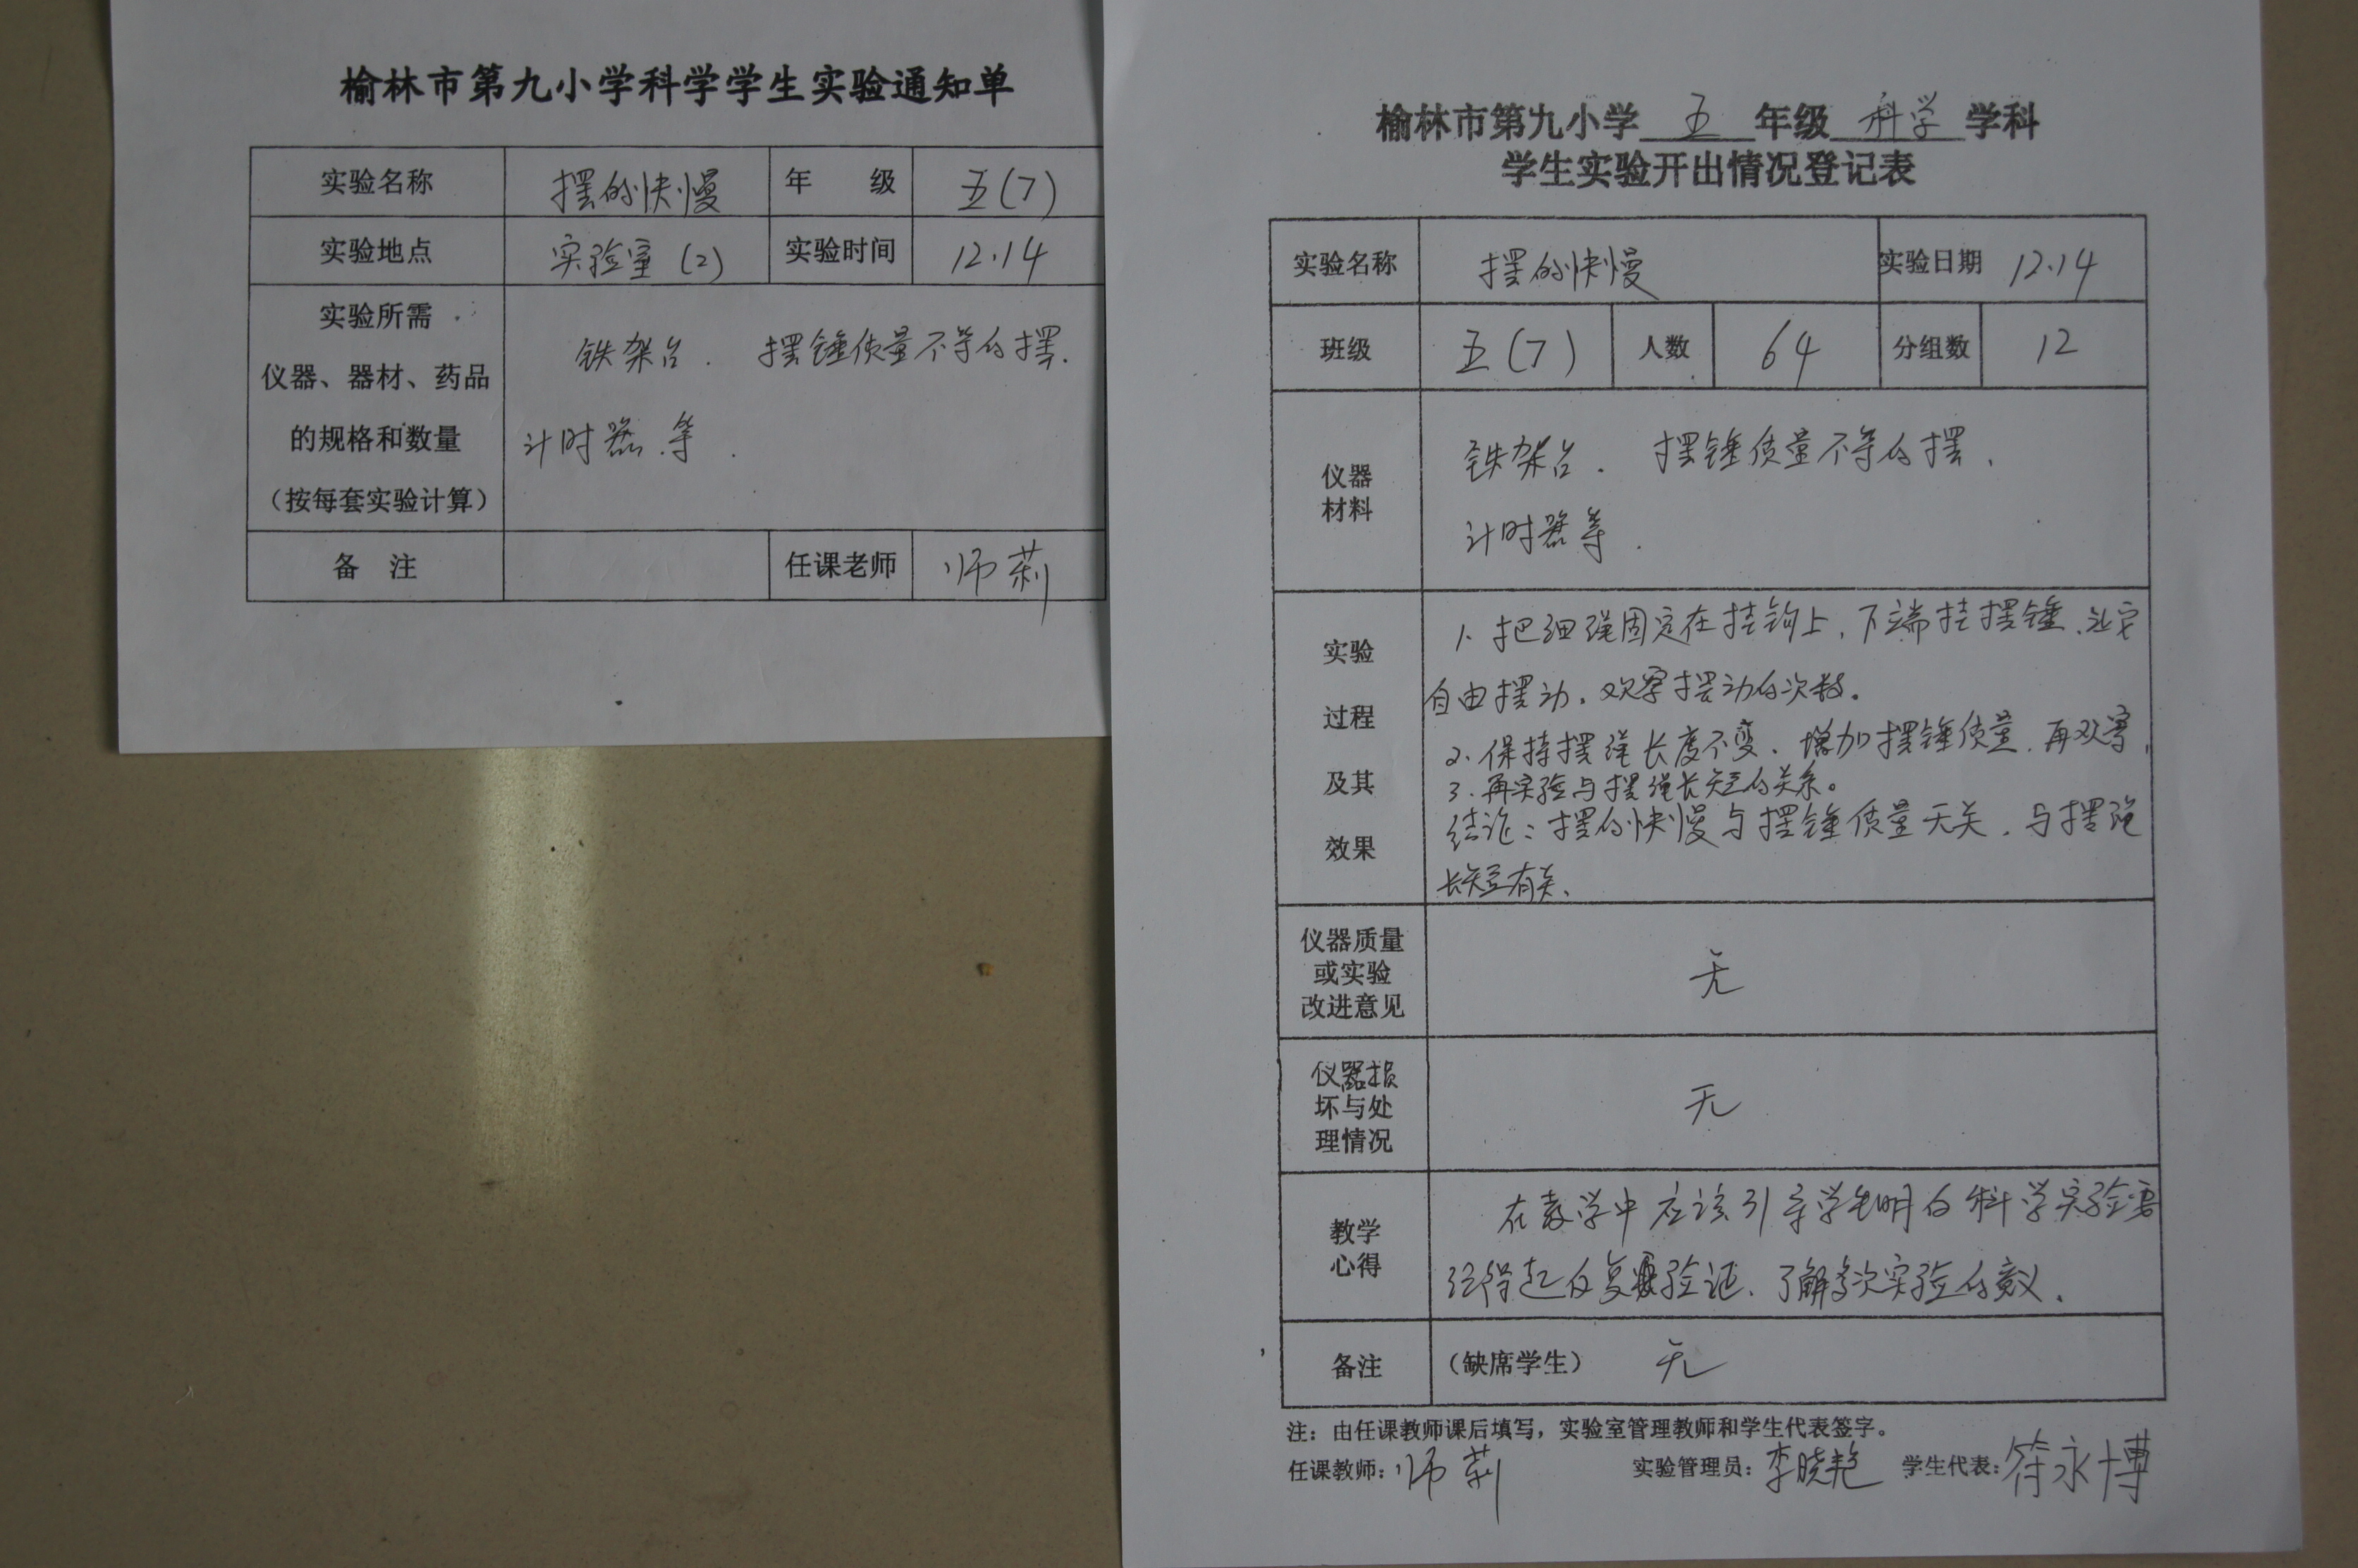 榆林市第九小学科学学生实验通知单
实验名称 摆的快慢 年 级 五(7)
实验地点 实验室(2) 实验时间 12.14
实验所需
仪器、器材、药品
的规格和数量
(按每套实验计算)
铁架台、摆锤质量不等的摆、
计时器等.
备 注 任课老师 师莉
榆林市第九小学 五 年级 科学 学科
学生实验开出情况登记表
实验名称 摆的快慢 实验日期 12.14
班级 五(7) 人数 64 分组数 12
仪器
材料
铁架台、摆锤质量不等的摆、
计时器等.
实验
过程
及其
效果
1、把细绳固定在挂钩上,下端挂摆锤,让它
自由摆动,观察摆动的次数。
2、保持摆绳长度不变、增加摆锤质量,再观察,
3、再实验与摆绳长短的关系。
结论:摆的快慢与摆锤质量无关,与摆绳
长短有关、
仪器质量
或实验
改进意见
无
仪器损
坏与处
理情况
无
教学
心得
在教学中应该引导学生明白科学实验要
经得起反复验证、了解多次实验的意义.
备注 (缺席学生) 无
注:由任课教师课后填写,实验室管理教师和学生代表签字。
任课教师:师莉 实验管理员:李晓艳 学生代表:符永博